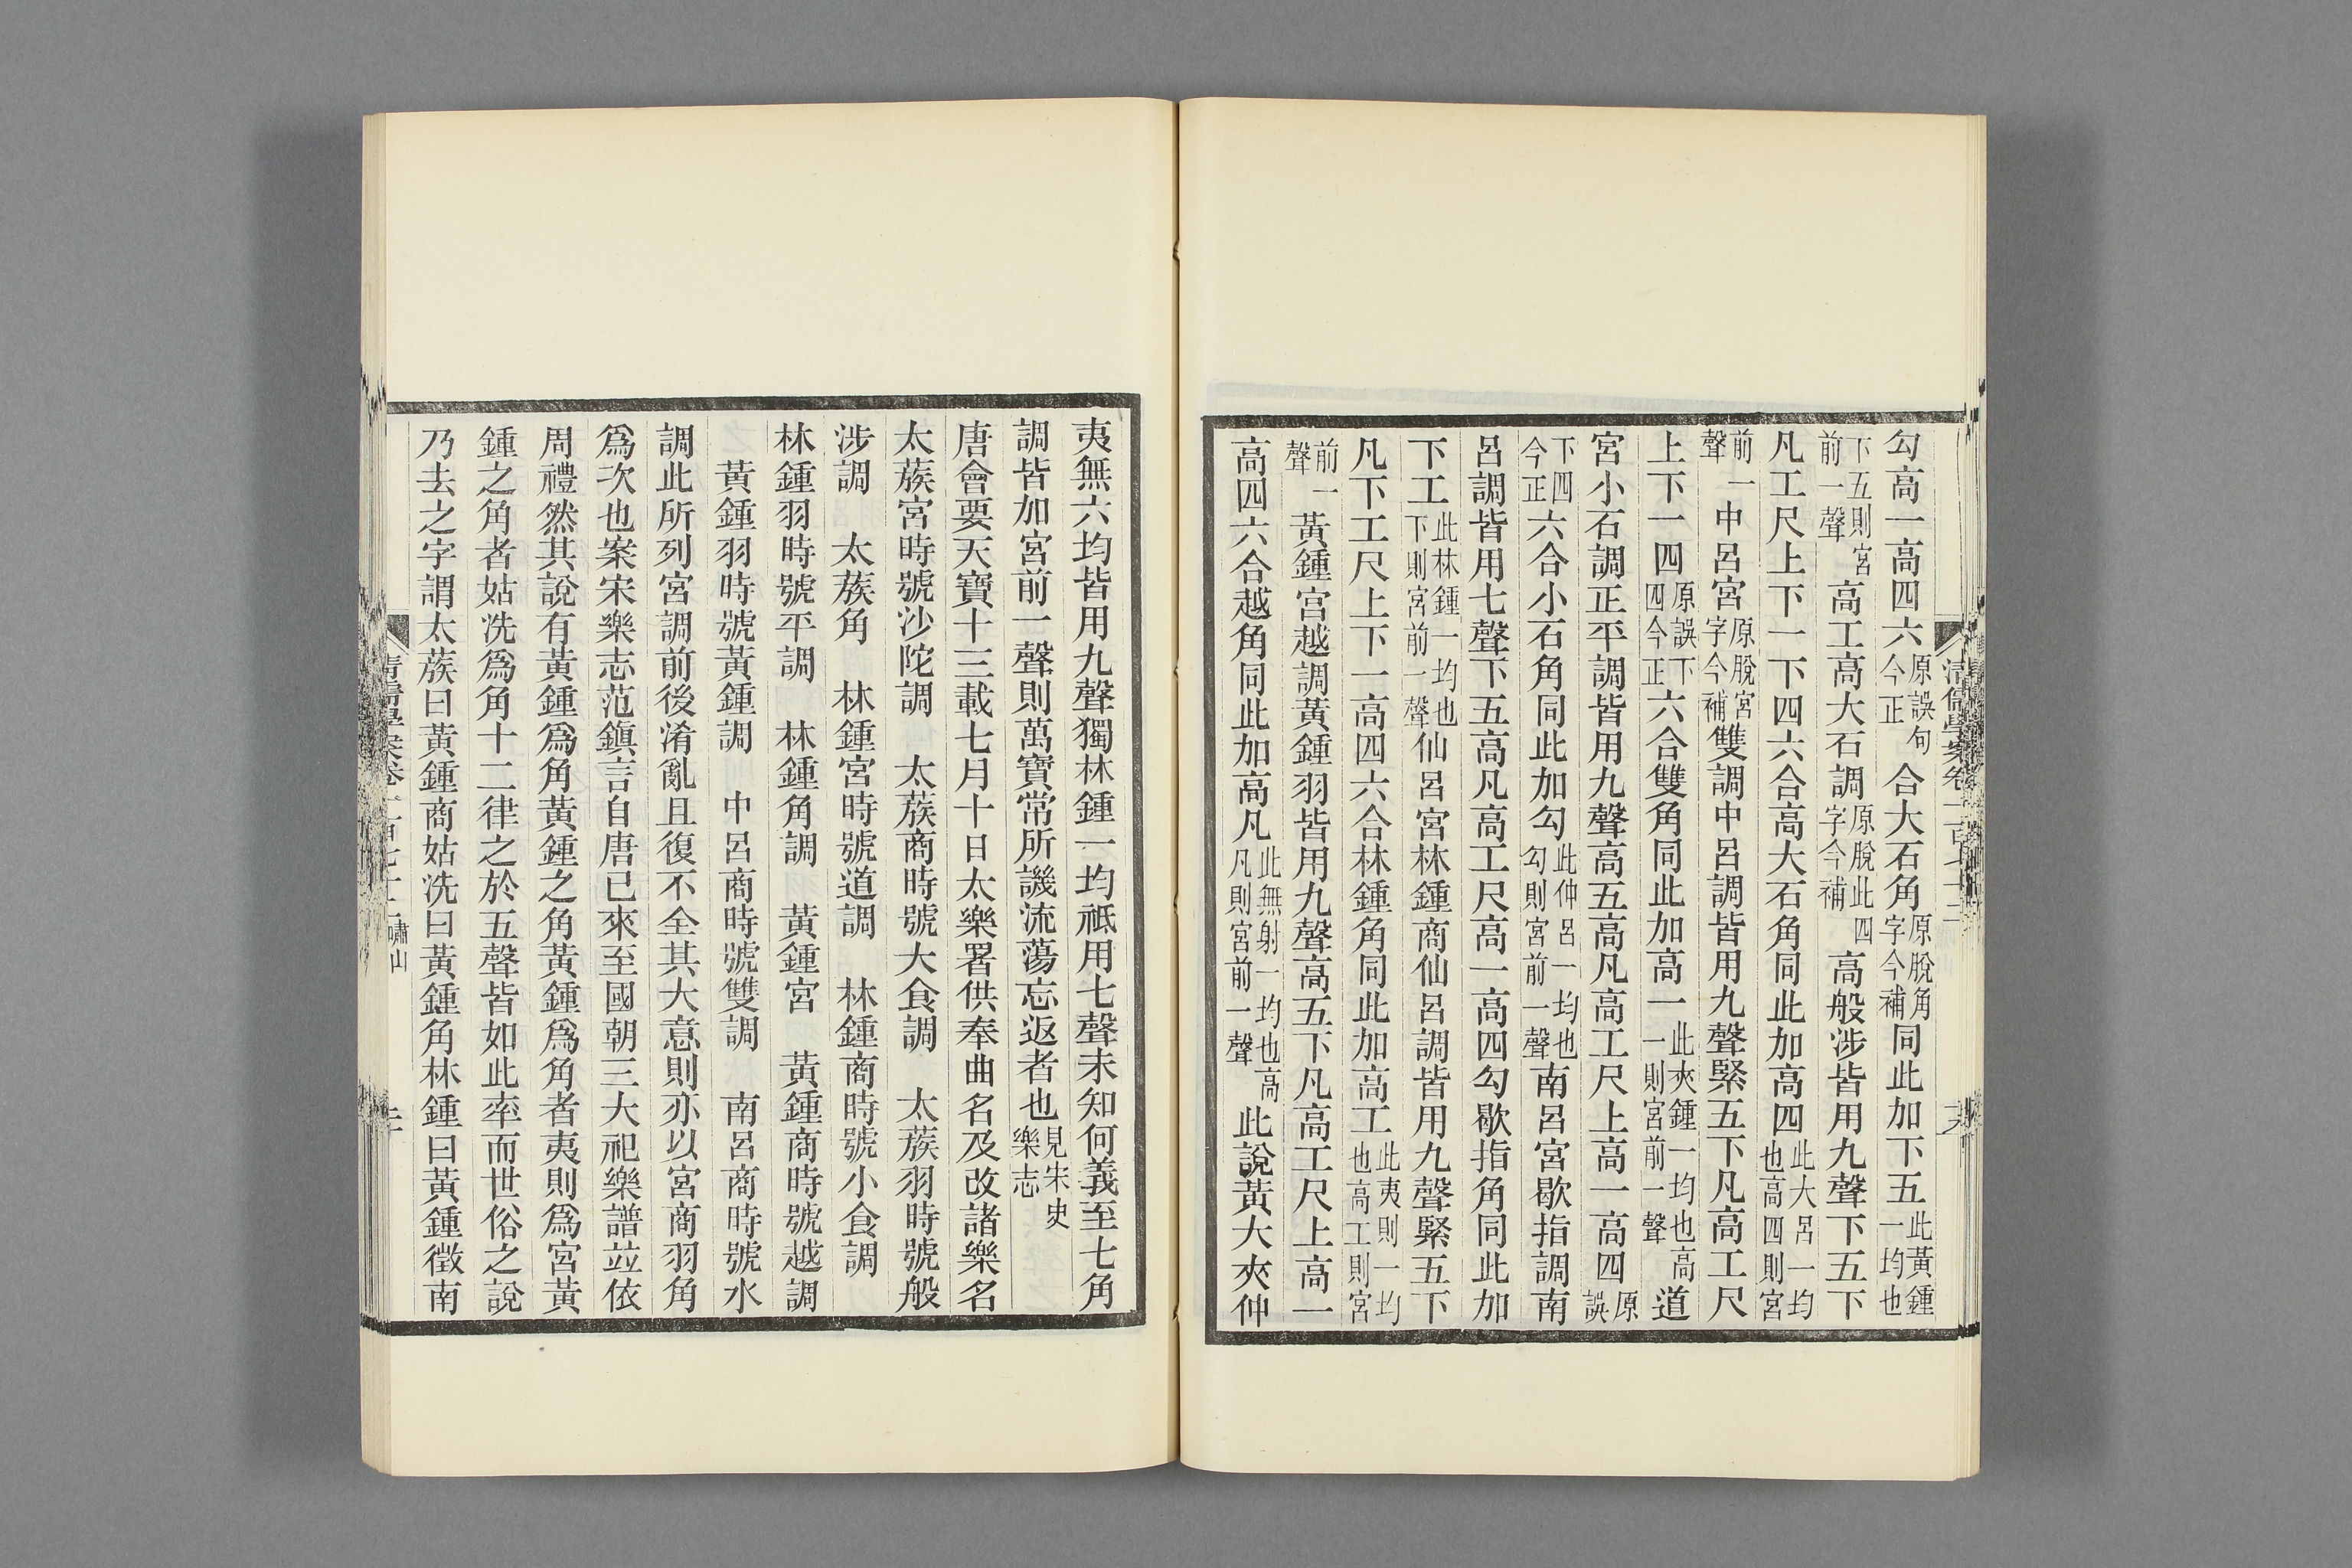 勾高一高四六原誤句今正合大石角原脫角字今補同此加下五此黃鍾一均也
下五則宮前一聲高工高大石調原脫此四字今補高般涉皆用九聲下五下
凡工尺上下一下四六合高大石角同此加高四此大呂一均也高四則宮
前一聲中呂宮原脫宮字今補雙調中呂調皆用九聲緊五下凡高工尺
上下一四原誤下四今正六合雙角同此加高一此夾鍾一均也高一則宮前一聲道
宮小石調正平調皆用九聲高五高凡高工尺上高一高四原誤
下四今正六合小石角同此加勾此仲呂一均也勾則宮前一聲南呂宮歇指調南
呂調皆用七聲下五高凡高工尺高一高四勾歇指角同此加
下工此林鍾一均也下則宮前一聲仙呂宮林鍾商仙呂調皆用九聲緊五下
凡下工尺上下一高四六合林鍾角同此加高工此夷則一均也高工則宮
前一聲黃鍾宮越調黃鍾羽皆用九聲高五下凡高工尺上高一
高四六合越角同此加高凡此無射一均也高凡則宮前一聲此說黃大夾仲
清儒學案卷一百七十三
夷無六均皆用九聲獨林鍾一均祇用七聲未知何義至七角
調皆加宮前一聲則萬寶常所譏流蕩忘返者也見宋史樂志
唐會要天寶十三載七月十日太樂署供奉曲名及改諸樂名
太蔟宮時號沙陀調　太蔟商時號大食調　太蔟羽時號般
涉調　太蔟角　林鍾宮時號道調　林鍾商時號小食調
林鍾羽時號平調　林鍾角調　黃鍾宮　黃鍾商時號越調
黃鍾羽時號黃鍾調　中呂商時號雙調　南呂商時號水
調此所列宮調前後淆亂且復不全其大意則亦以宮商羽角
爲次也案宋樂志范鎮言自唐已來至國朝三大祀樂譜竝依
周禮然其說有黃鍾爲角黃鍾之角黃鍾爲角者夷則爲宮黃
鍾之角者姑洗爲角十二律之於五聲皆如此率而世俗之說
乃去之字謂太蔟曰黃鍾商姑洗曰黃鍾角林鍾曰黃鍾徵南
嘯山